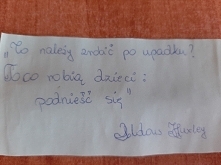 „Co należy zrobić po upadku?
To co robią dzieci:
podnieść się"
Aldous Huxley